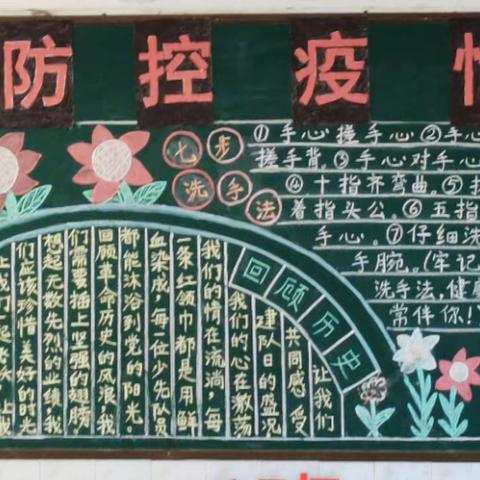 防控疫
七步
洗手法
①手心搓手心②手心
搓手背.③手心对手心
④十指齐弯曲.⑤
着指头公.⑥五指
手心.⑦仔细洗
手腕.(牢记
洗手法,健康
常伴你!
回顾历史
让我们
共同感受
建队日的盛况
我们的心在激荡
我们的情在流淌,每
一条红领巾都是用鲜
血染成,每一位少先队员
都能沐浴到党的阳光.
回顾革命历史的风浪,我
们需要插上坚强的翅膀.
想起无数先烈的业绩,我
们应该珍惜美好的时光
让我们一起飞跃,让我